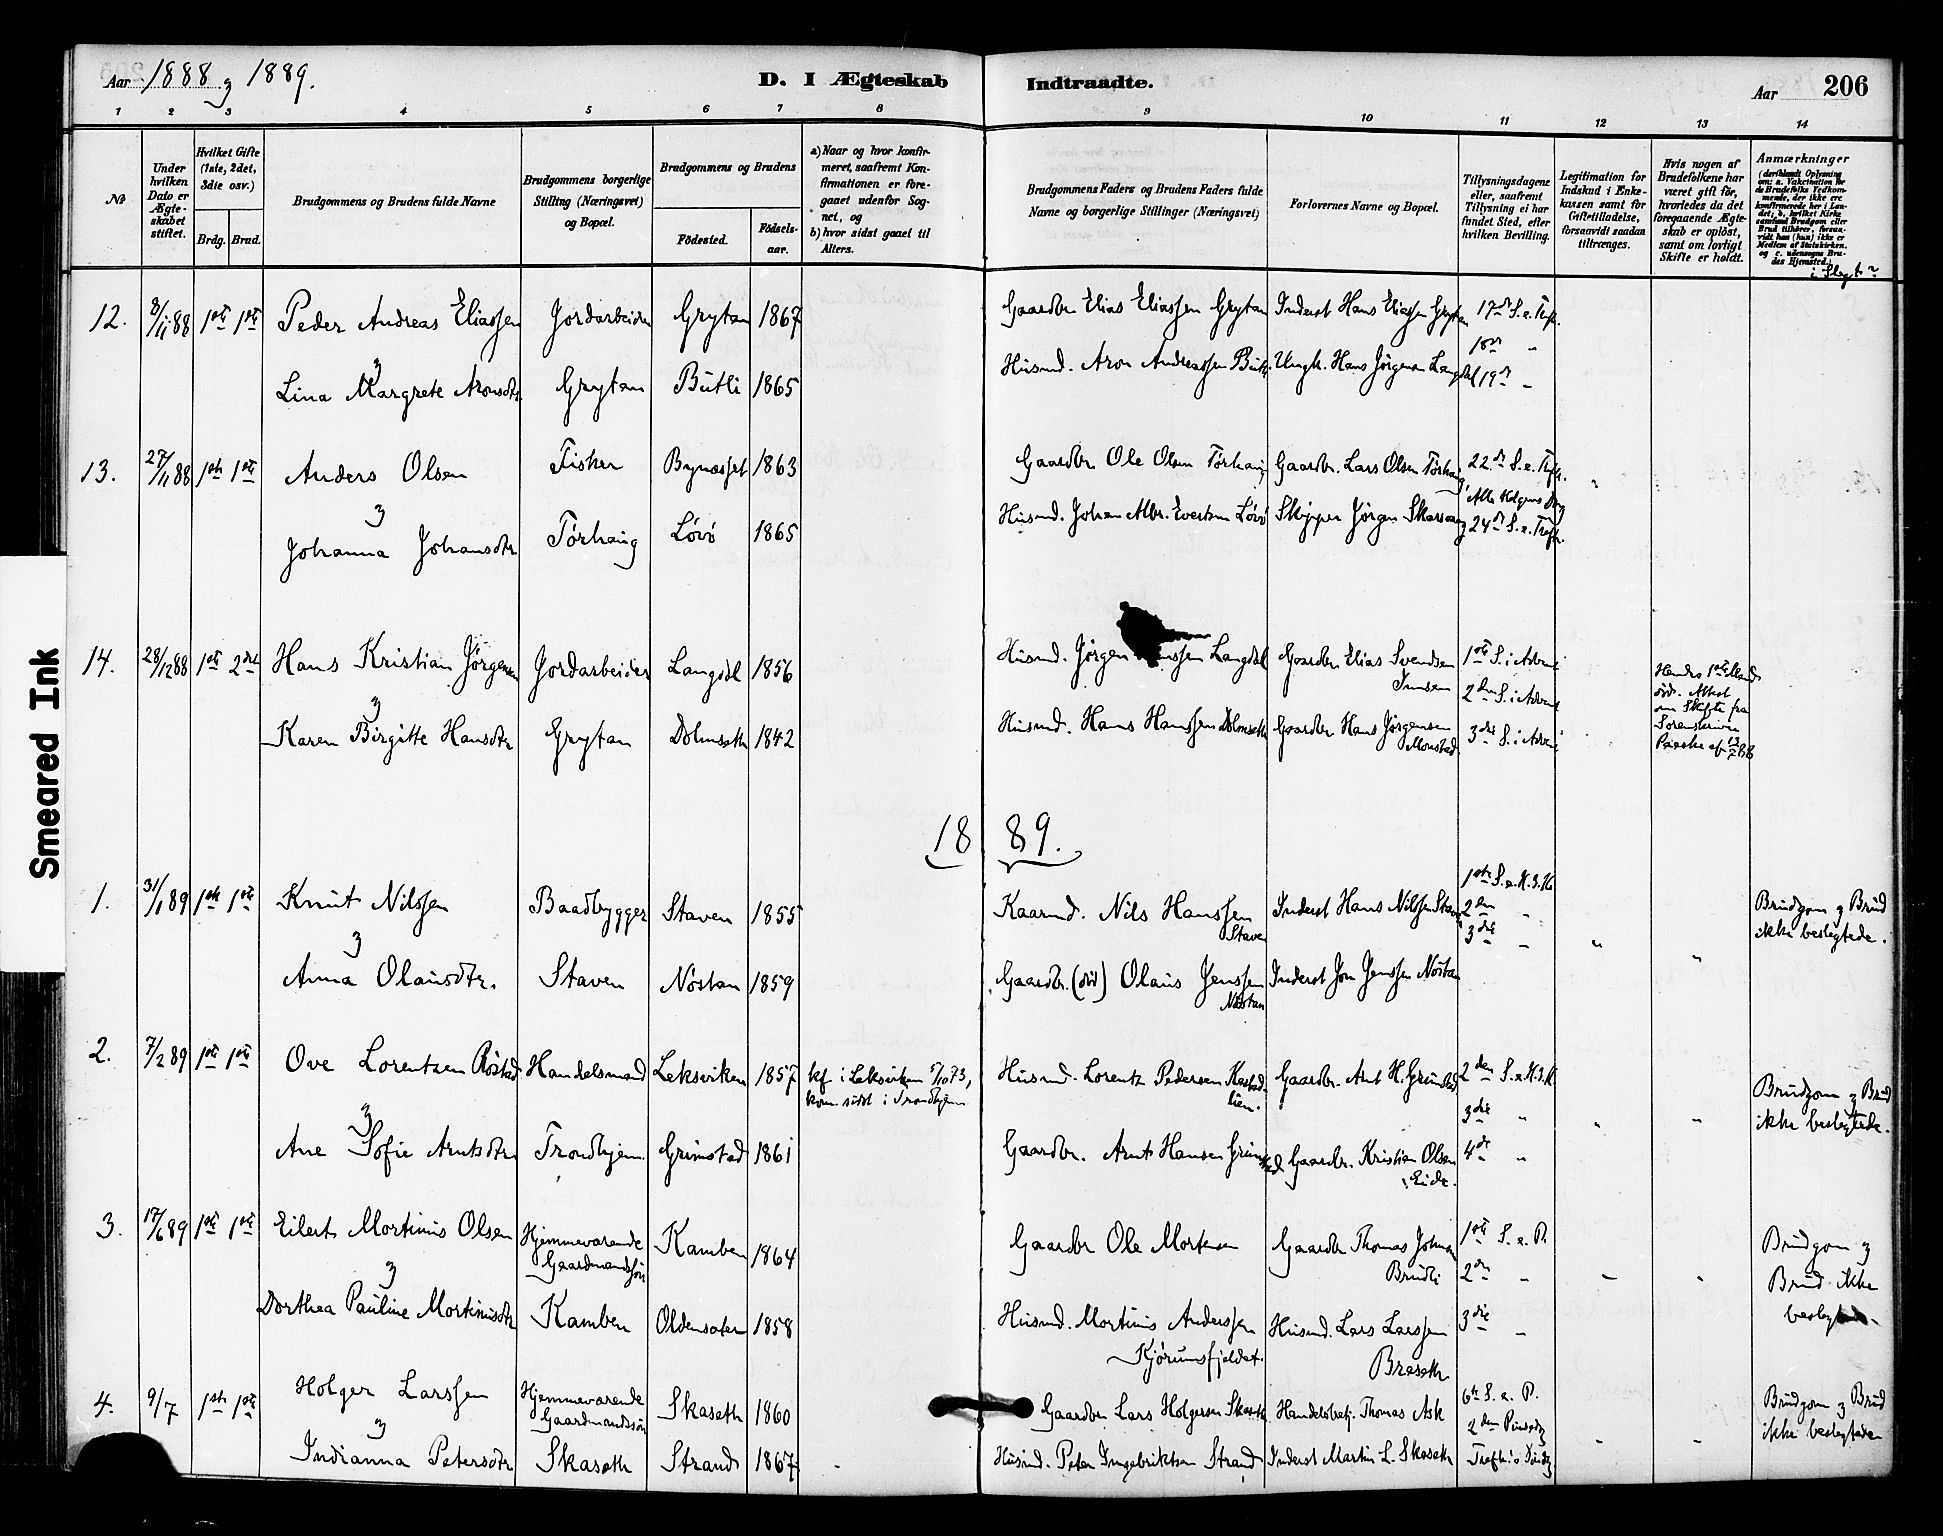 Aar 1888 og 1889.
D. I Ægteskab Indtraadte.
Aar 206
1 2 3 4 5 6 7 8 9 10 11 12 13 14
No
Under hvilken Dato er Ægteskabet stiftet.
Hvilket Gifte (1ste, 2det, 3die osv.)
Brdg. Brud.
Brudgommens og Brudens fulde Navne
Brudgommens borgerlige Stilling (Næringsvei) og Bopæl.
Brudgommens og Brudens
Födested.
Födsels-aar.
a) Naar og hvor konfirmeret, saafremt Konfirmationen er foregaaet udenfor Sognet, og
b) hvor sidst gaaet til Alters.
Brudgommens Faders og Brudens Faders fulde Navne og borgerlige Stillinger (Næringsvei)
Forlovernes Navne og Bopæl.
Tillysningsdagene eller, saafremt Tillysning ei har fundet Sted, efter hvilken Bevilling.
Legitimation for Indskud i Enkekassen samt for Giftetilladelse, forsaavidt saadan tiltrænges.
Hvis nogen af Brudefolkene har været gift för, hvorledes da det foregaaende Ægteskab er oplöst, samt om lovligt Skifte er holdt.
Anmærkninger
(deriblandt Oplysning om: a. Vakcination for de Brudefolks Vedkommende, der ikke ere konfirmerede her i Landet; b. hvilket Kirkesamfund Brudgom eller Brud tilhörer, forsaavidt han (hun) ikke er Medlem af Statskirken, og c. udensogns Brudes Hjemsted.)
i Slegt?
12. 8/11 88 1ste 1ste Peder Andreas Eliassen Jordarbeider Grytan 1867 Gaardbr Elias Eliassen Grytan Inderst Hans Eliassen Grytan 17de S. e. Tref.
18de "
og
Lina Margrete Aronsdtr Grytan Butli 1865 Husmd. Aron Andreassen Butli Ungk. Hans Jörgensen Langdal 19de "
13. 27/11 88 1ste 1ste Anders Olsen Fisker Bynæsset 1863 Gaardbr. Ole Olsen Törhaug Gaardbr. Lars Olsen Törhaug 22de S. e. Tref.
Alle Helgens Dag
og
Johanna Johansdtr Törhaug Lövö 1865 Husmd. Johan Albr. Evertsen Lövö Skipper Jörgen 24de S. e. Tref.
14. 28/12 88 1ste 2det Hans Kristian Jörgensen Jordarbeider Langdal 1856 Husmd. Jörgen Langdal Gaardbr. Elias Svendsen 1ste S. i Advent
2den S. i Advent
Hendes 1ste Mand död. Attest om Skifte fra Sorenskriver
og
Karen Birgitte Hansdtr Grytan Dolmseth 1842 Husmd. Hans Hanssen Dolmseth Gaardbr Hans Jörgensen Monstad 3die S. i Advent
1889.
1. 31/1 89 1ste 1ste Knut Nilssen Baadbygger Staven 1855 Kaarmd. Nils Hanssen Staven Inderst Hans Nilssen Staven 1ste S. e. H. 3. K.
2den "
3die "
Brudgom og Brud ikke beslegtede.
og
Anna Olausdtr. Staven Nöstan 1859 Gaardbr. (död) Olaus Jenssen Nöstan Inderst Jon Jenssen Nöstan
2. 7/2 89 1ste 1ste Ove Lorentsen Röstad Handelsmand Leksviken 1857 kf. i Leksviken 5/10 73, kom. sidst i Trondhjem Husmd. Lorentz Pedersen Gaardbr. Arnt H. Grimstad 2den S. e. H. 3. K.
3die "
Brudgom og Brud ikke beslegtede.
og
Ane Sofie Arntsdtr Trondhjem Grimstad 1861 Gaardbr. Arnt Hansen Grimstad Gaardbr. Kristian Olsen Eide. 4de "
3. 17/6 89 1ste 1ste Eilert Mortinus Olsen Hjemmeværende Gaardmandssön Kamben 1864 Gaardbr Ole Mortensen Gaardbr Thomas Johnsen Brudli 1ste S. e. P.
2den "
Brudgom og Brud ikke beslegtede.
og
Dorthea Pauline Mortinusdtr Kamben Oldensæter 1858 Husmd. Mortinus Anderssen Kjörumsfjeldet. Husmd. Lars Larssen Bræseth 3die "
4. 9/7 1ste 1ste Holger Larssen Hjemmeværende Gaardmandssön Skaseth 1860 Gaardbr Lars Holgersen Skaseth Handelsbetj. Thomas Ask 6te S. e. P.
2den Pinsedag
Brudgom og Brud ikke beslegtede
og
Indianna Petersdtr Skaseth Strand 1867 Husmd. Peter Ingebriktsen Strand Inderst Martin L. Skaseth
Smeared Ink